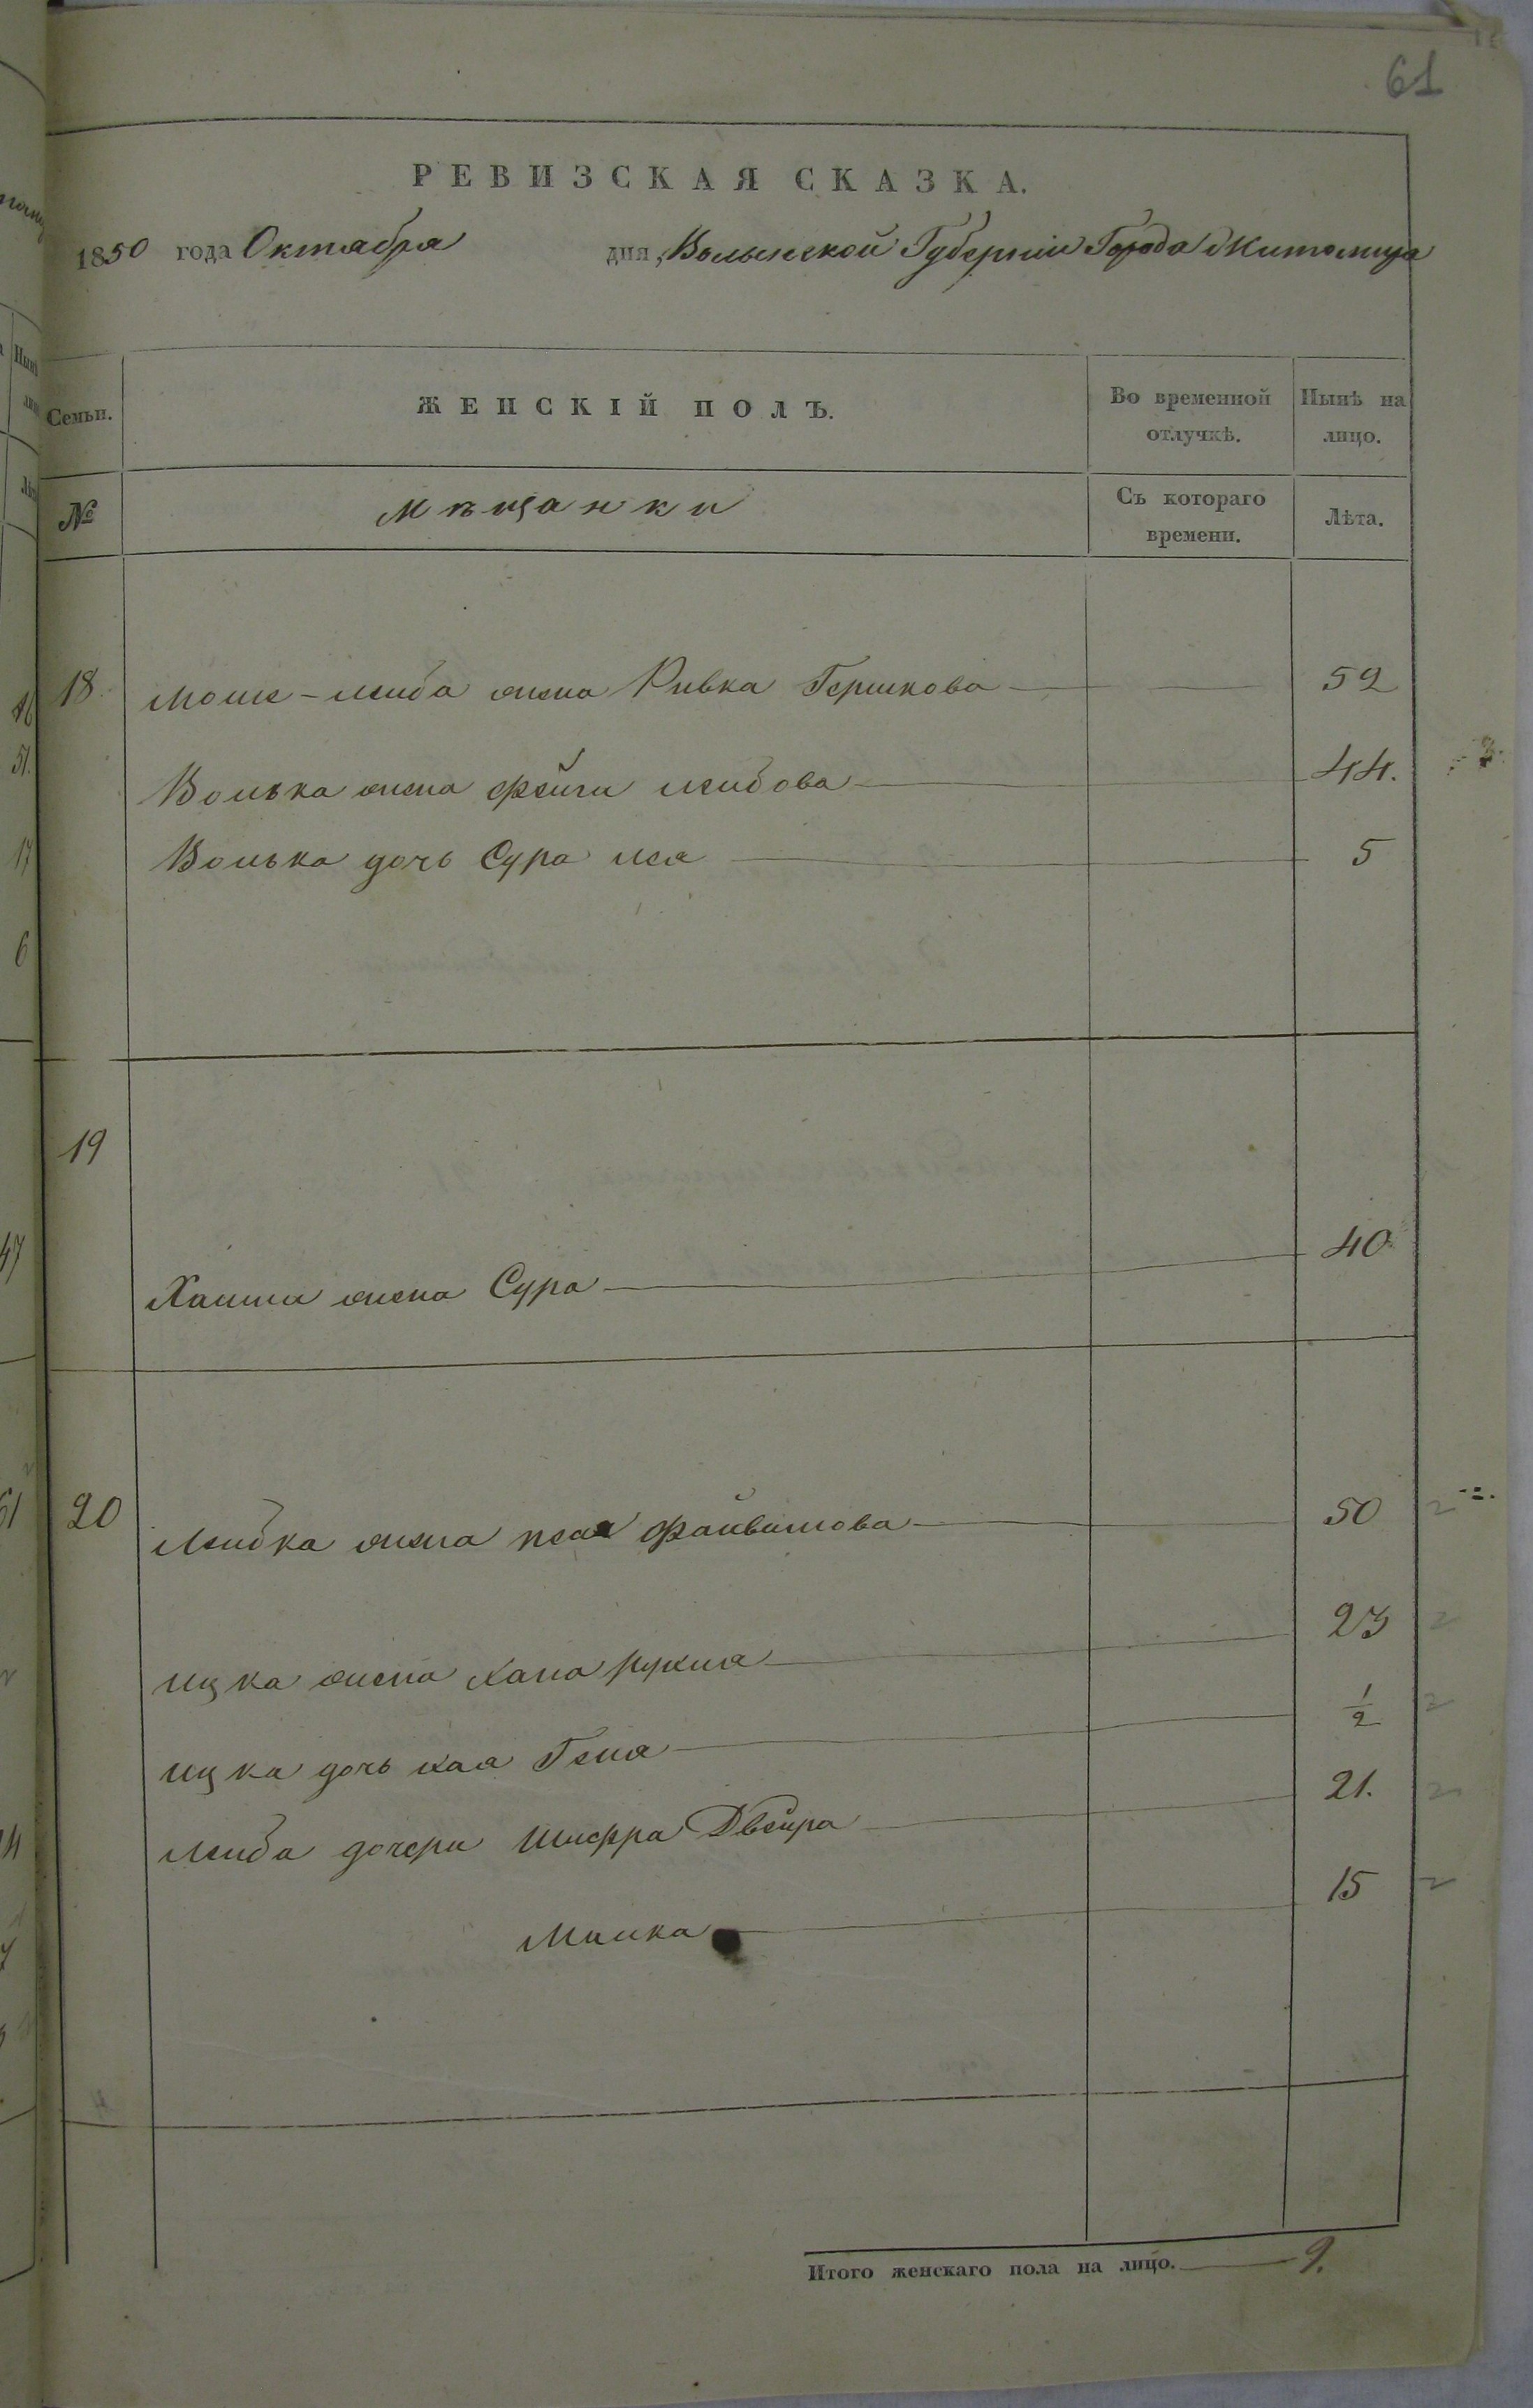 61
РЕВИЗСКАЯ СКАЗКА.
1850 года Октября дня, Волынской Губерніи Города Житомира
Семьи. ЖЕНСКІЙ ПОЛЪ. Во временной отлучкѣ. Нынѣ на лицо.
№ Мѣщанки Съ котораго времени. Лѣта.
18 Мошк-Лейба жена Ривка Гершкова 52
Волька жена Фейги Лейбова 44.
Волька дочь Сура Лея 5
19
Хаима жена Сура 40
20 Лейбка жена Файвишова 50
Ицка жена Хана Рухля 23
Ицка дочь Хая Геня 1/2
Лейба дочери Шифра Двейра 21.
Малка 15
Итого женскаго пола на лицо. 9.